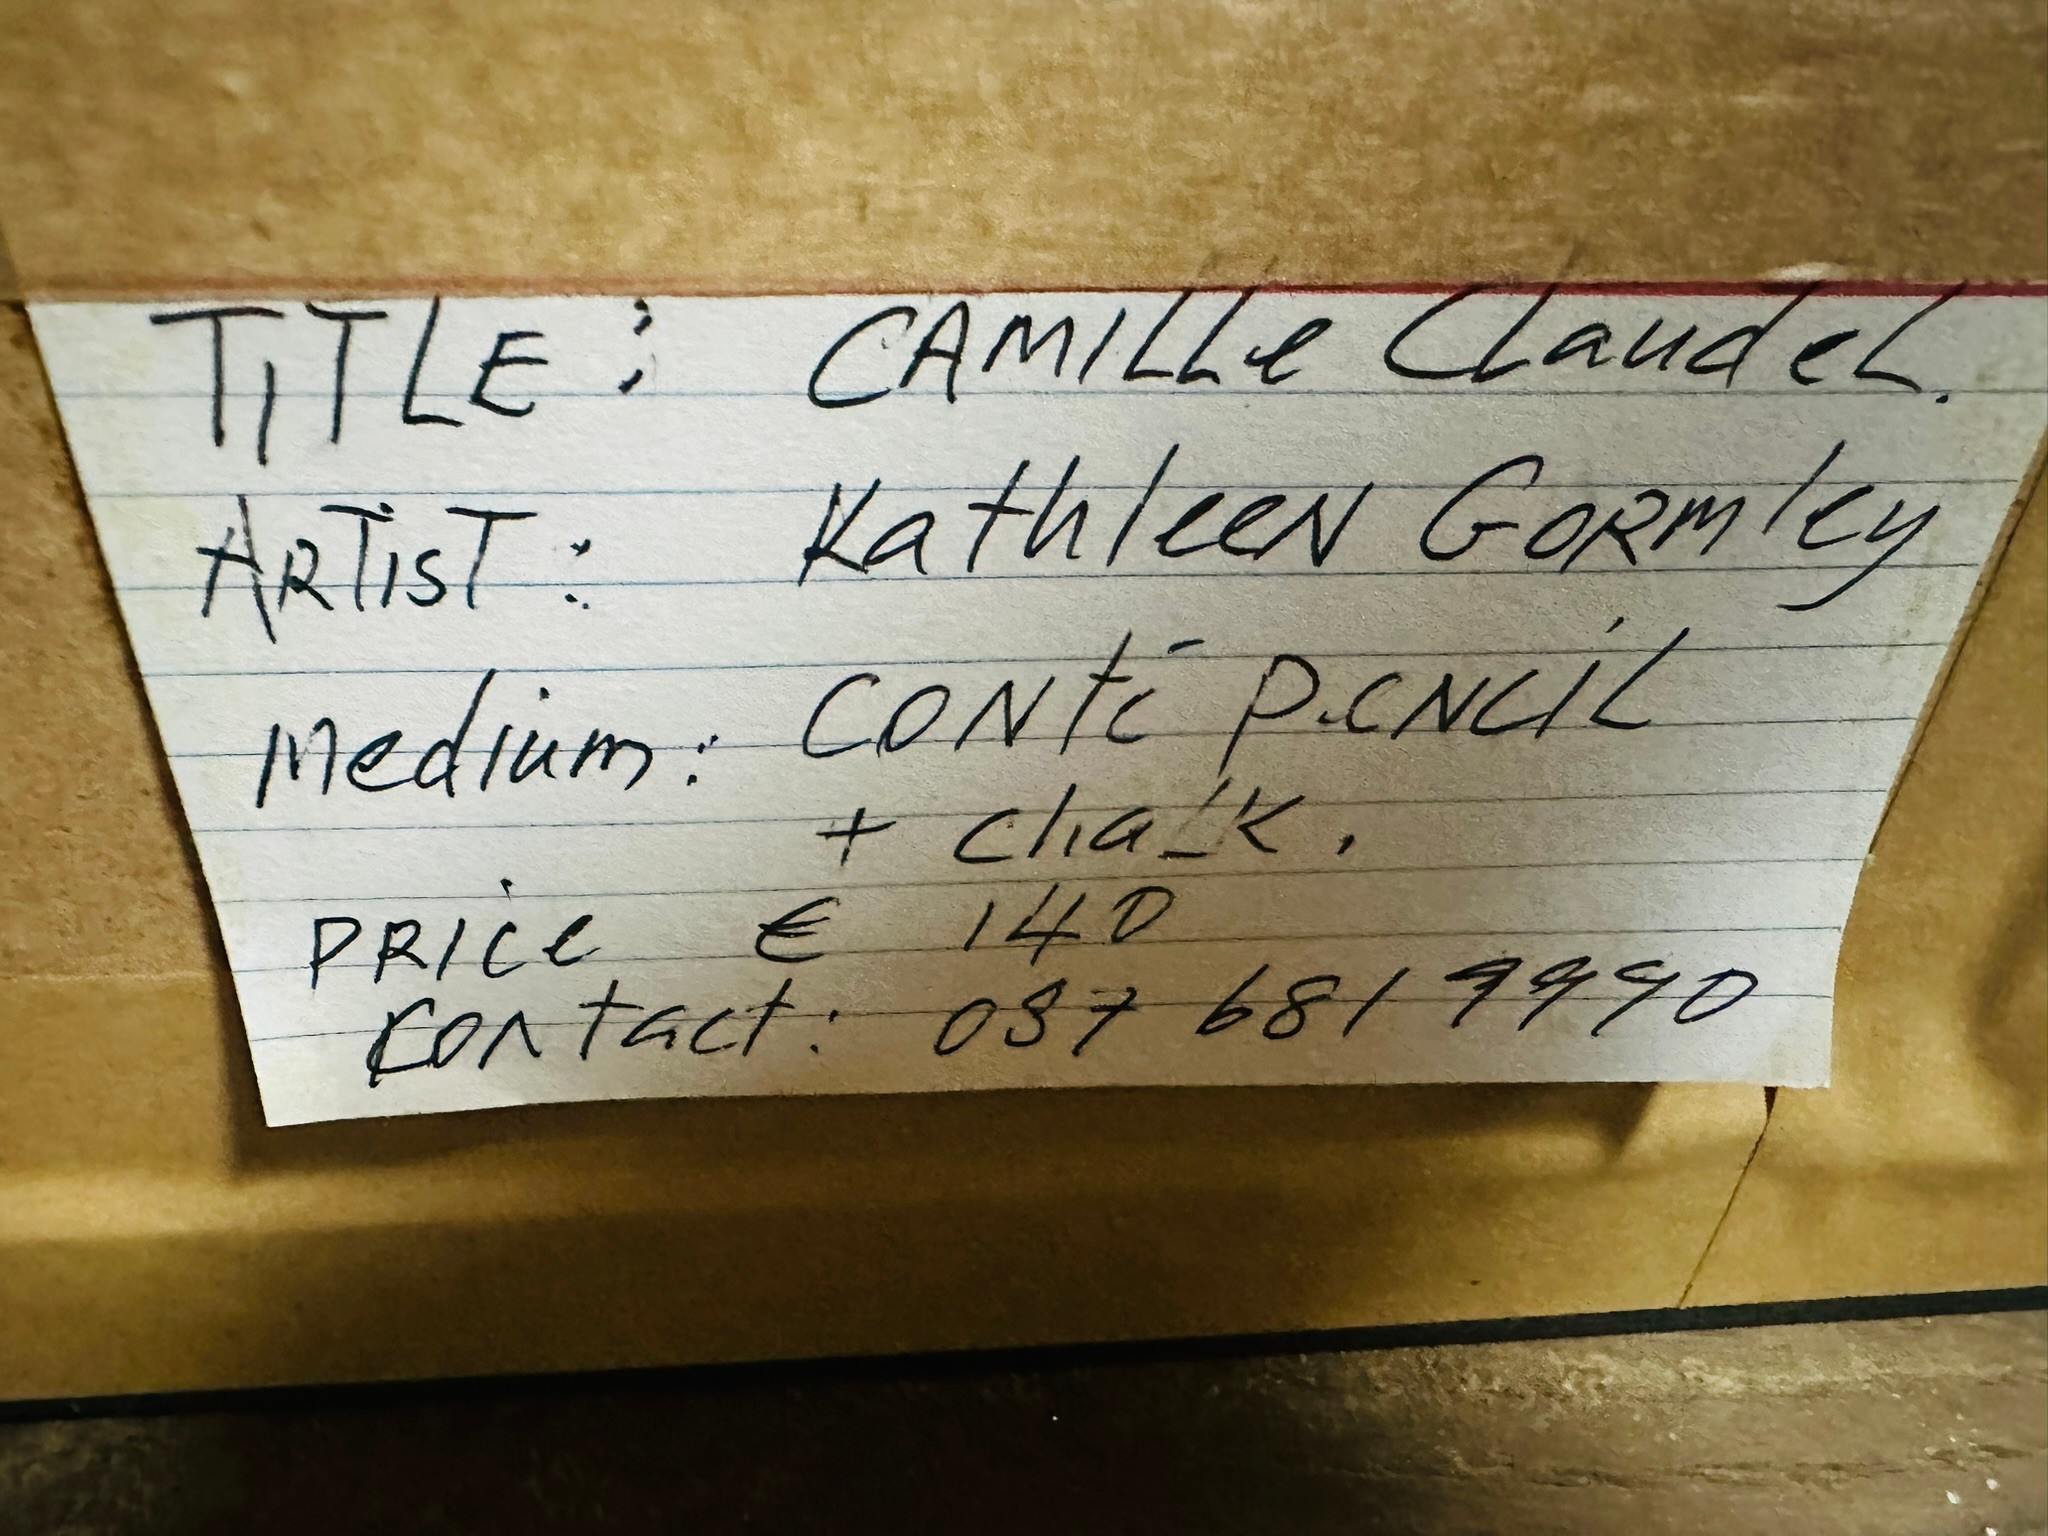 TITLE: CAMILLE Claudel.
ARTIST: Kathleen Gormley
Medium: Conté pencil
+ chalk.
PRICE € 140
Contact: 087 681 9990